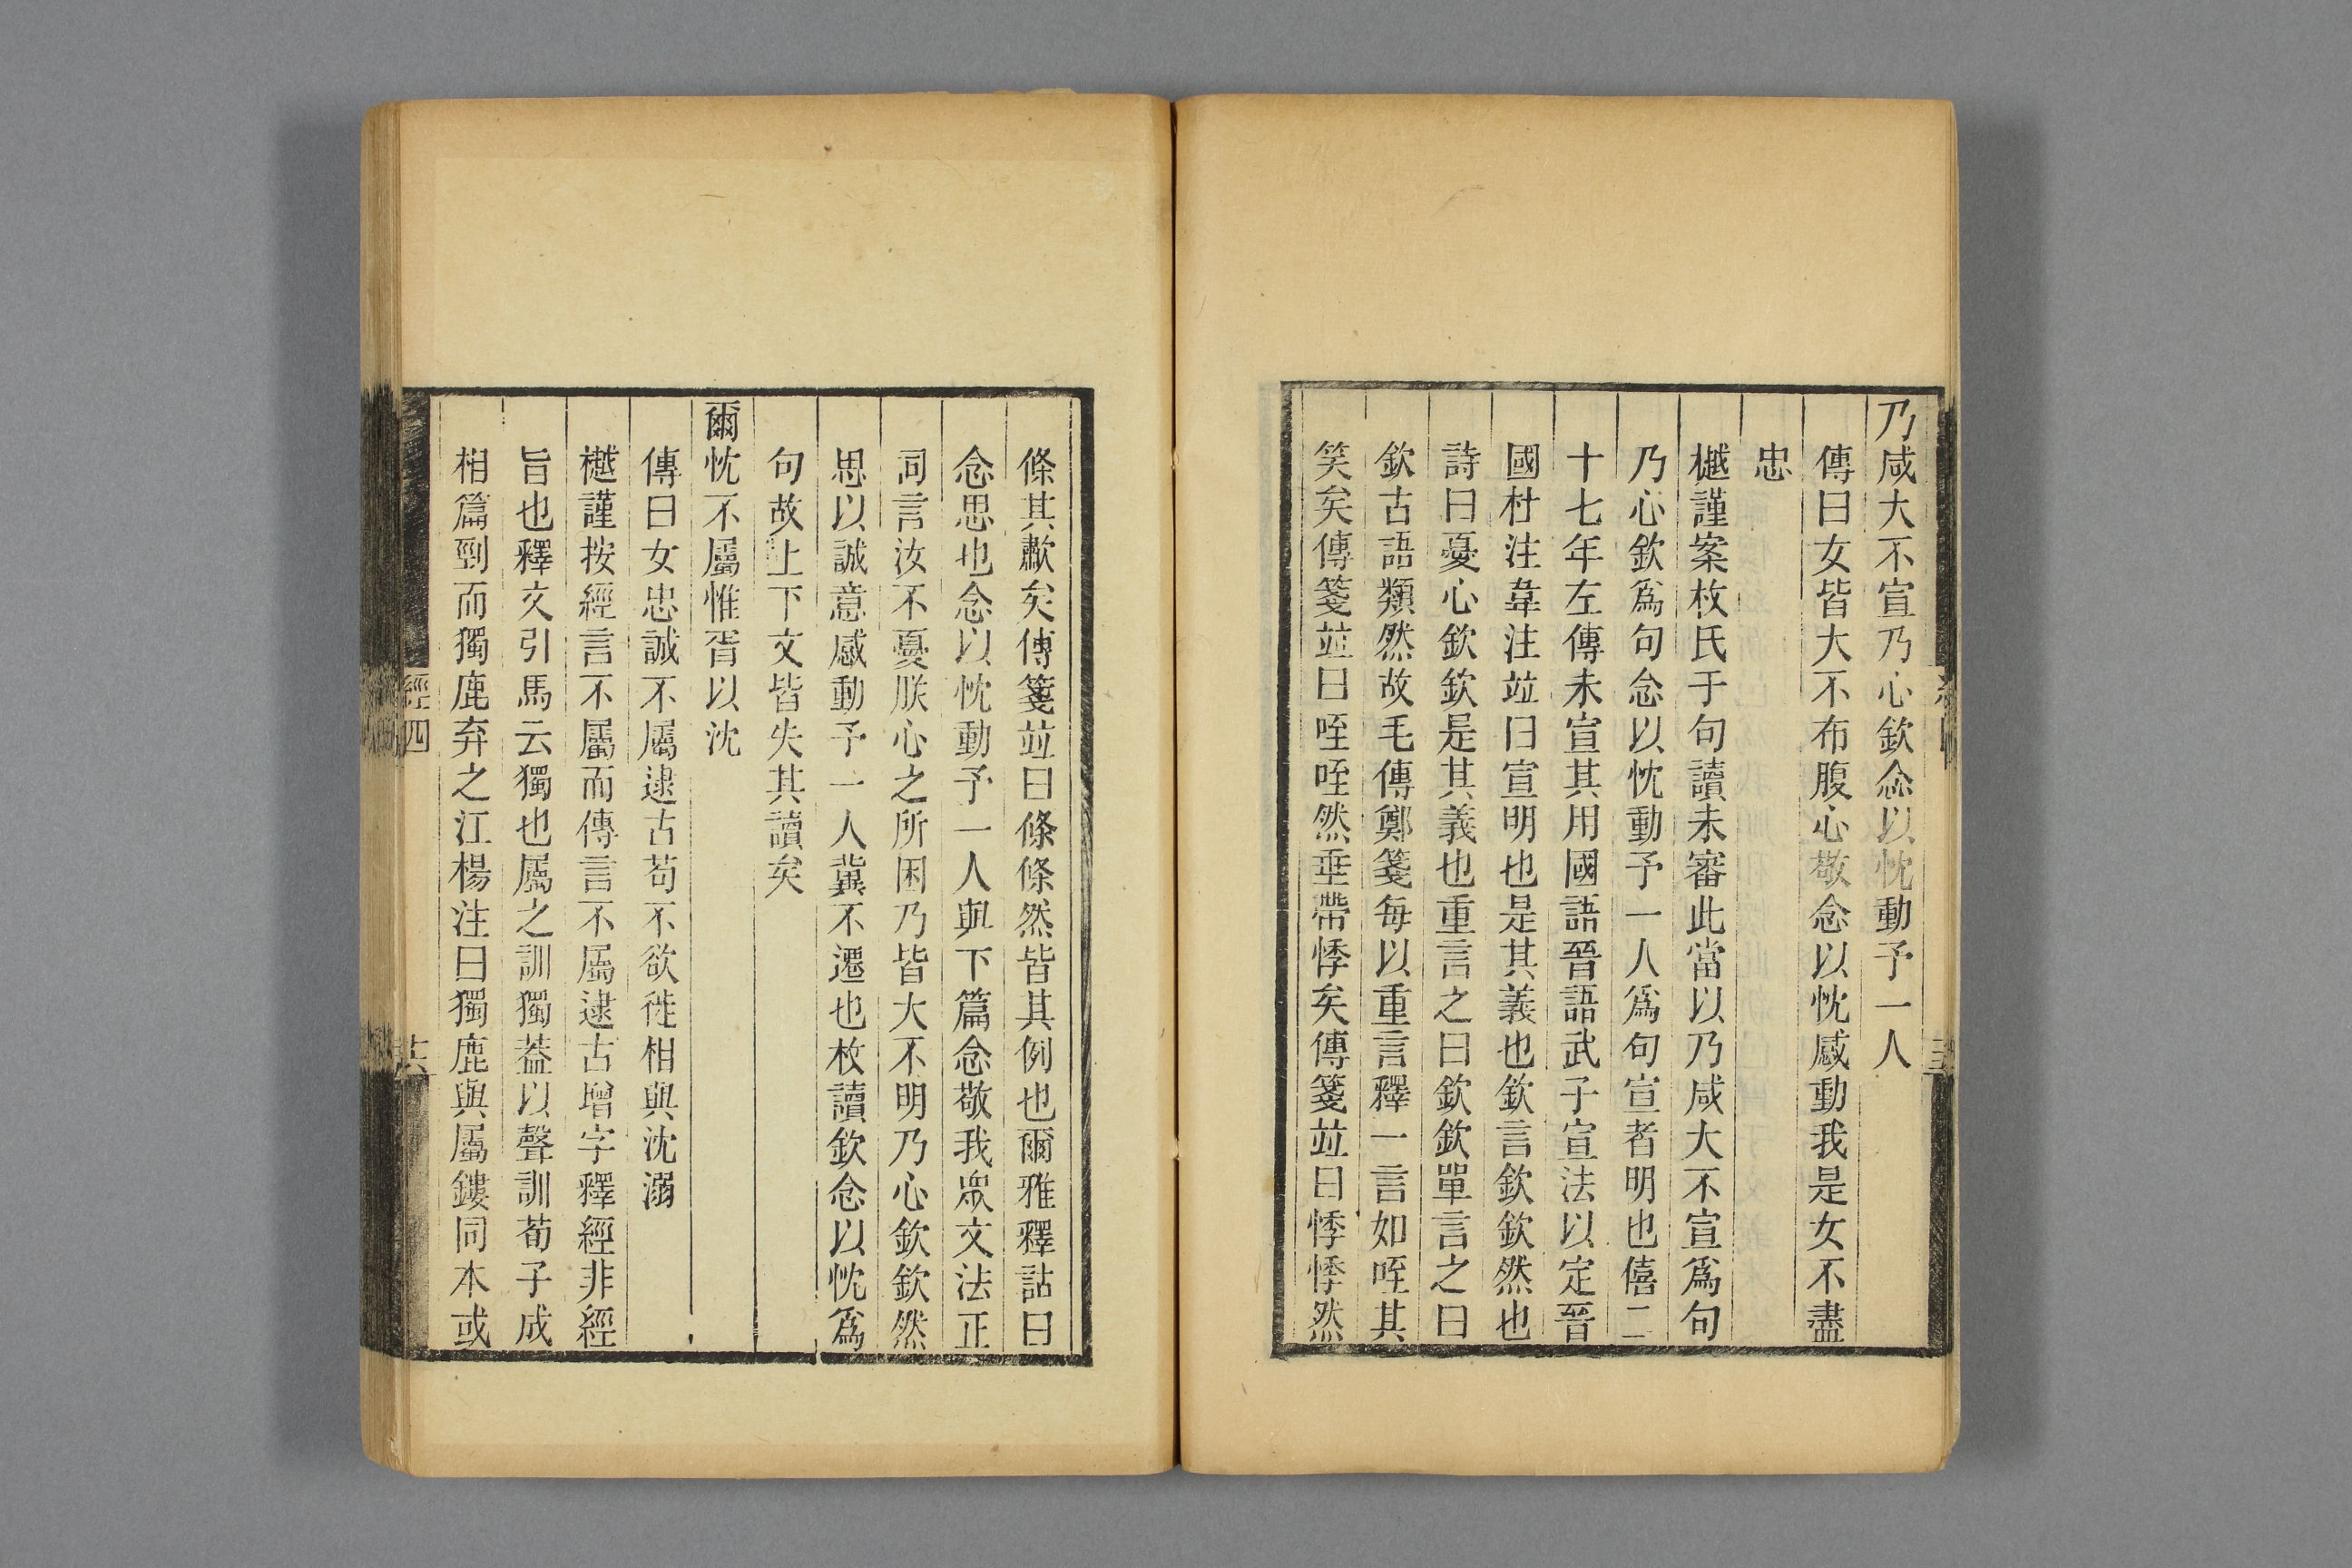 乃咸大不宣乃心欽念以忱動予一人
傳曰女皆大不布腹心敬念以忱感動我是女不盡
忠
樾謹案枚氏于句讀未審此當以乃咸大不宣爲句
乃心欽爲句念以忱動予一人爲句宣者明也僖二
十七年左傳未宣其用國語晉語武子宣法以定晉
國杜注韋注竝曰宣明也是其義也欽言欽欽然也
詩曰憂心欽欽是其義也重言之曰欽欽單言之曰
欽古語類然故毛傳鄭箋每以重言釋一言如咥其
笑矣傳箋竝曰咥咥然垂帶悸矣傳箋竝曰悸悸然
條其歗矣傳箋竝曰條條然皆其例也爾雅釋詁曰
念思也念以忱動予一人與下篇念敬我眾文法正
同言汝不憂朕心之所困乃皆大不明乃心欽欽然
思以誠意感動予一人冀不遷也枚讀欽念以忱爲
句故上下文皆失其讀矣
爾忱不屬惟胥以沈
傳曰女忠誠不屬逮古苟不欲徙相與沈溺
樾謹按經言不屬而傳言不屬逮古增字釋經非經
旨也釋文引馬云獨也屬之訓獨葢以聲訓荀子成
相篇剄而獨鹿弃之江楊注曰獨鹿與屬鏤同本或
經四